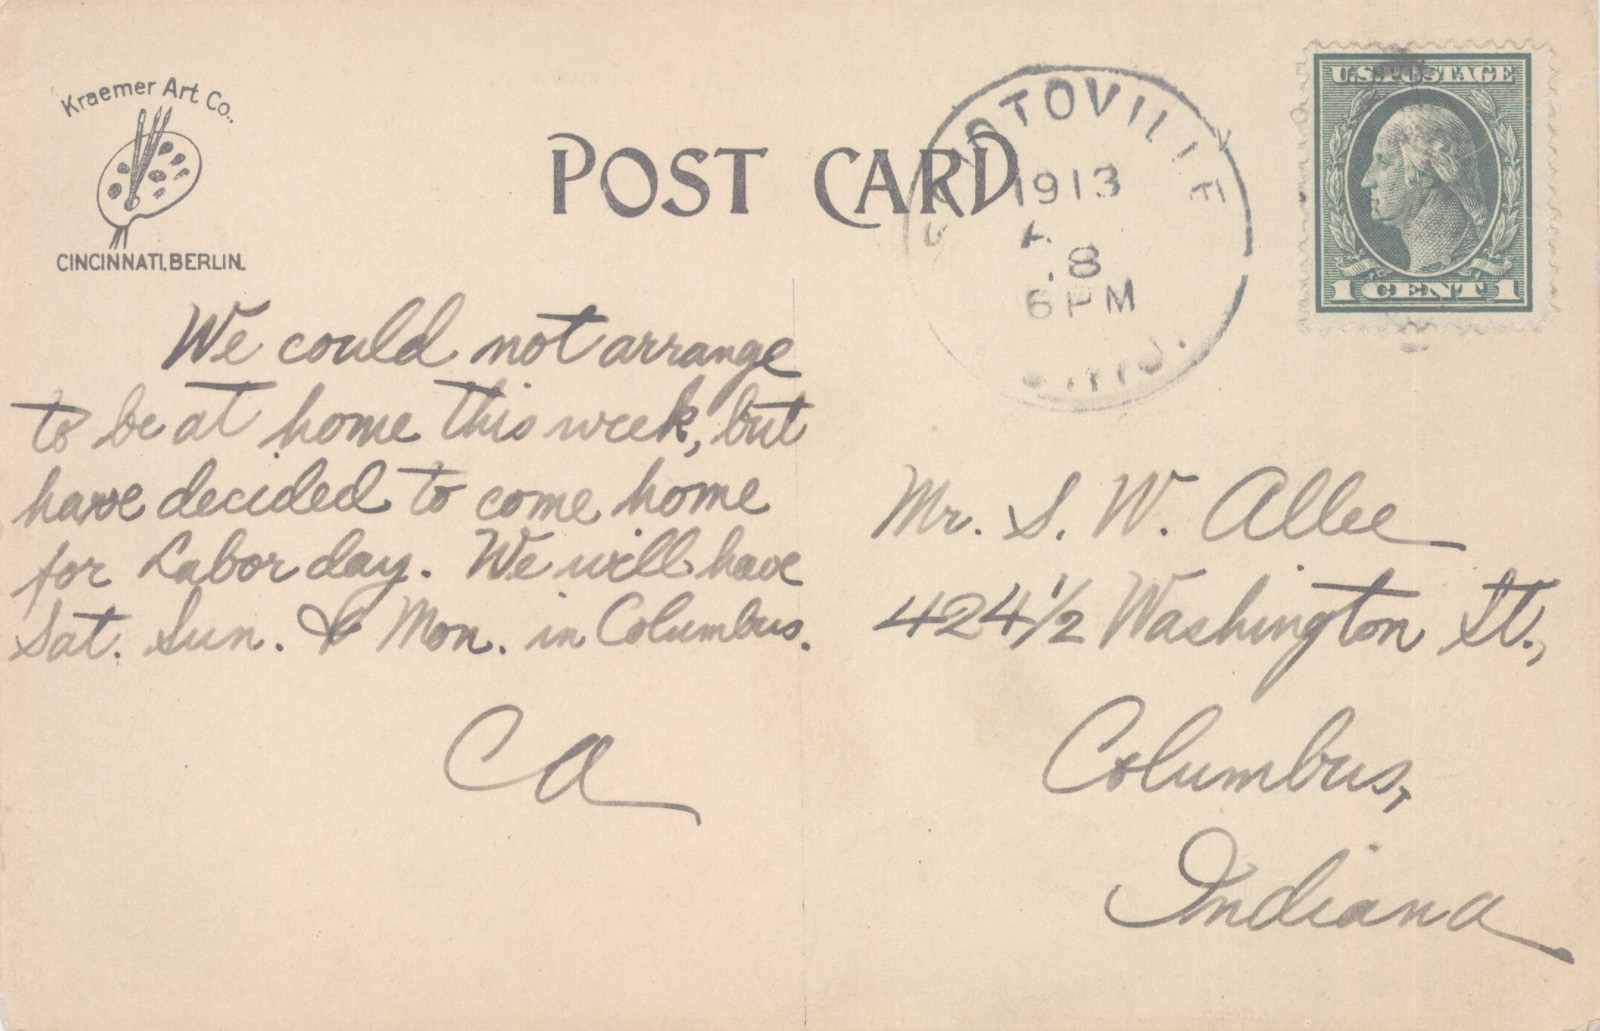 Kraemer Art Co.
CINCINNATI, BERLIN.
POST CARD
1913
8
6 PM
U.S. POSTAGE
1 CENT 1
We could not arrange
to be at home this week, but
have decided to come home
for Labor day. We will have
Sat. Sun. & Mon. in Columbus.
CA
Mr. S. W. Allee
424 1/2 Washington St.,
Columbus,
Indiana